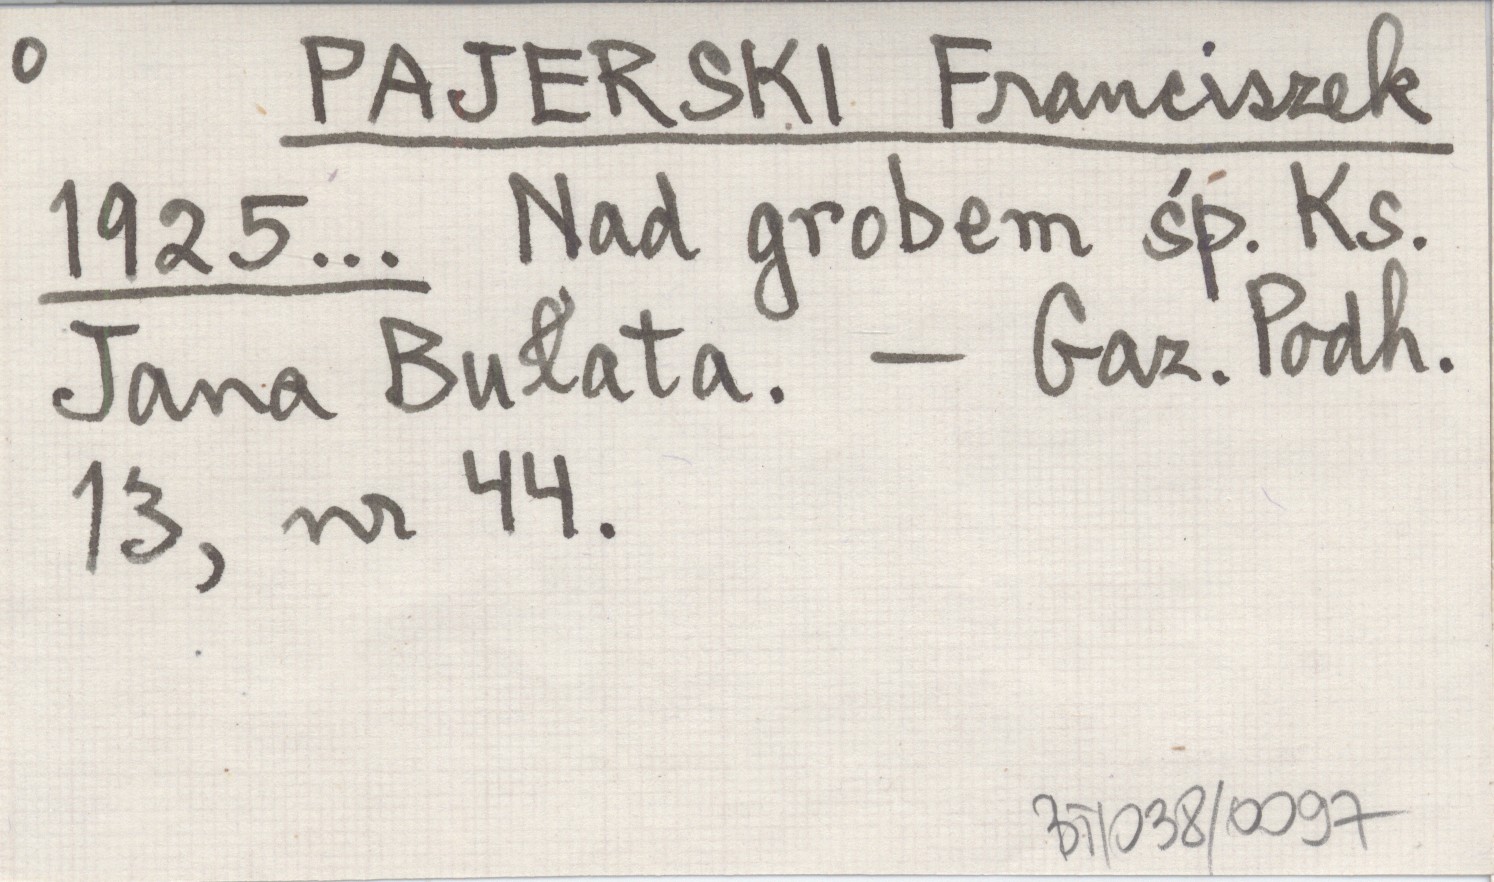 o PAJERSKI Franciszek
1925... Nad grobem śp. Ks.
Jana Bułata. — Gaz. Podh.
13, nr 44.
BT/038/0097